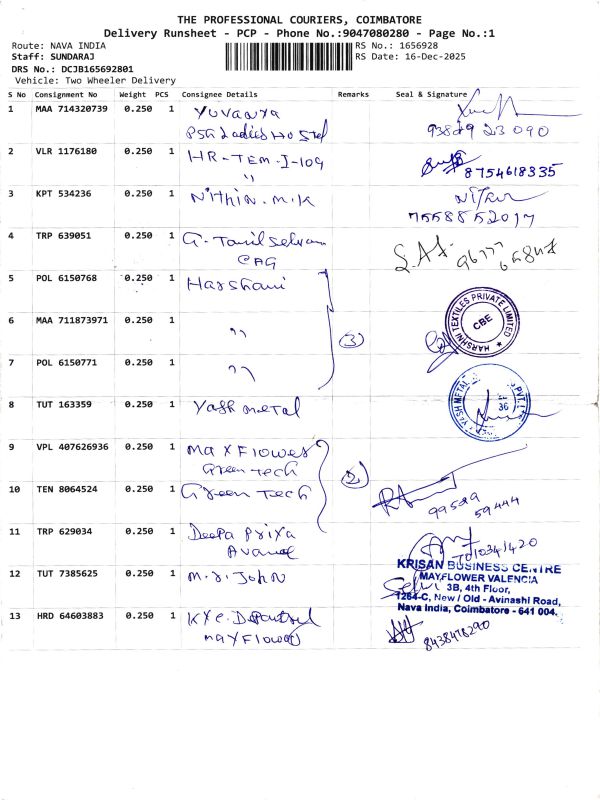 THE PROFESSIONAL COURIERS, COIMBATORE
Delivery Runsheet - PCP - Phone No.:9047080280 - Page No.:1
Route: NAVA INDIA
RS No.: 1656928
Staff: SUNDARAJ
RS Date: 16-Dec-2025
DRS No.: DCJB165692801
Vehicle: Two Wheeler Delivery
S No Consignment No Weight PCS Consignee Details Remarks Seal & Signature
1 MAA 714320739 0.250 1 Yuvanya
PSG Ladies Hostel
2 VLR 1176180 0.250 PCS 1 HR-TEM-I-109
"
8754618335
3 KPT 534236 0.250 PCS 1 Nithin.M.K
7558852017
4 TRP 639051 0.250 PCS 1 G. Tamil Selvam
CAG
96777
5 POL 6150768 0.250 PCS 1 Harshani
6 MAA 711873971 0.250 1 "
(3)
HARSHNI TEXTILES PRIVATE LIMITED
CBE
7 POL 6150771 0.250 PCS 1 "
8 TUT 163359 0.250 PCS 1 Yash metal
YASH METAL
36
9 VPL 407626936 0.250 1 Maxflower
Green Tech
(2)
10 TEN 8064524 0.250 PCS 1 Green Tech
99529
59444
11 TRP 629034 0.250 PCS 1 Deepa Priya
Avanue
12 TUT 7385625 0.250 PCS 1 M.J. John
KRISAN BUSINESS CENTRE
MAYFLOWER VALENCIA
3B, 4th Floor,
1264-C, New / Old - Avinashi Road,
Nava India, Coimbatore - 641 004.
13 HRD 64603883 0.250 PCS 1
Maxflower
8438478290